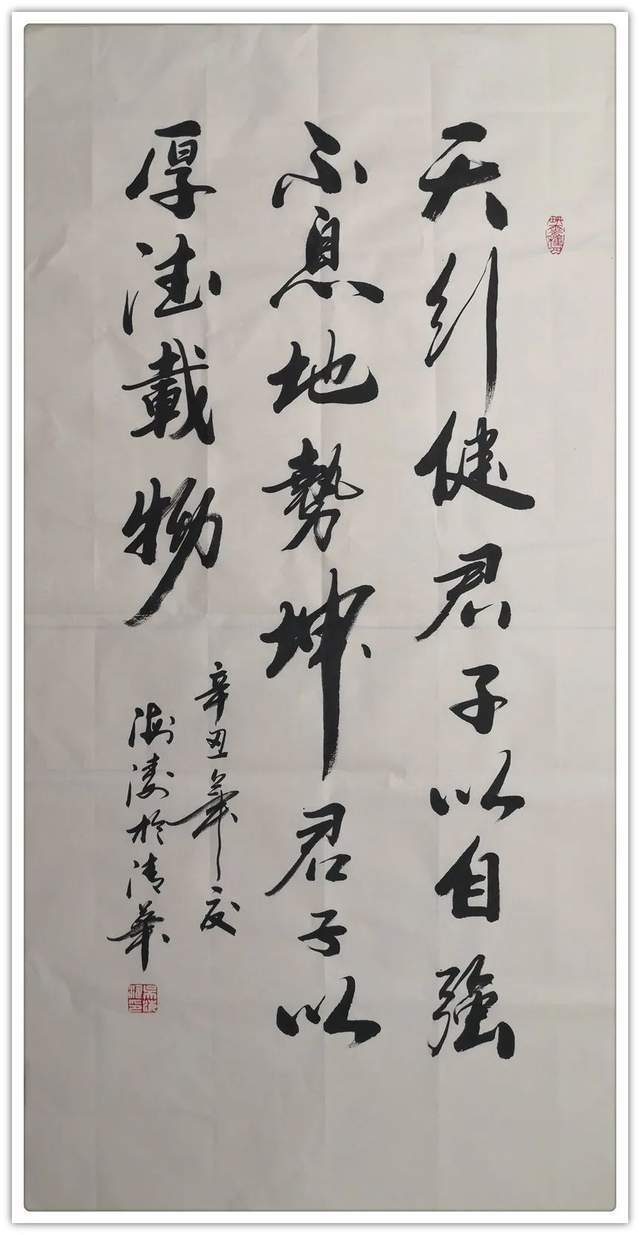 天行健君子以自強
不息地勢坤君子以
厚德載物
辛丑年夏
於清華